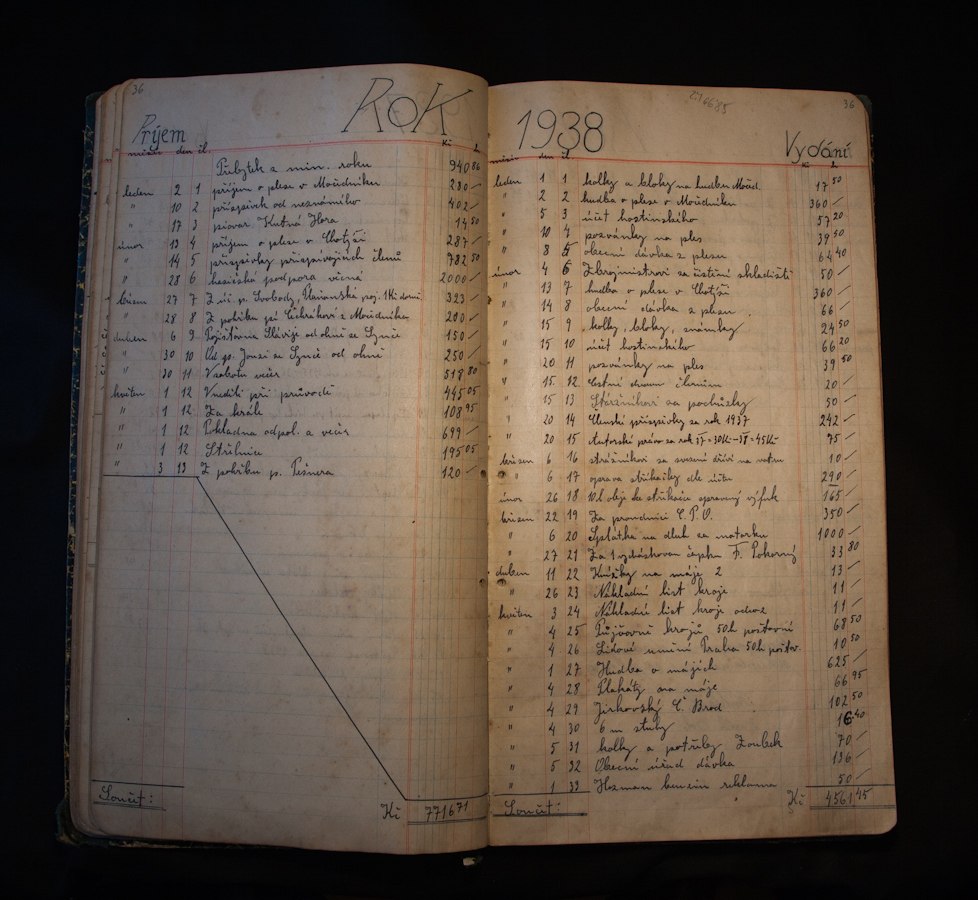 36
ROK
Příjem
měsíc den čl. Kč h
Přebytek z min. roku 940 86
leden 2 1 příjem o plese v Močedníku 280 —
" 10 2 příspěvek od neznámého 402 —
" 17 3 pivovar Kutná Hora 14 50
únor 13 4 příjem o plese v Chotýši 287 —
" 14 5 příspěvky přispívajících členů 782 50
" 28 6 hasičská podpora věcná 2000 —
březen 27 7 Z úč. p. Svobody, poj. 323 —
" 28 8 Z pohřbu pí Čechrákové z Močedníka 200 —
duben 6 9 Pojišťovna Slavije od ohně ze Synče 150 —
" 30 10 Od po. Jouzi ze Synče od ohně 250 —
" 30 11 V sobotu večer 518 80
květen 1 12 V neděli při průvodě 445 05
" 1 12 Za krále 108 95
" 1 12 Pokladna odpol. a večer 699 —
" 1 12 Střelnice 195 05
" 3 13 Z pohřbu p. Pešnera 120 —
Součet: Kč 7716 71
36
1938
Vydání
měsíc den čl. Kč h
leden 1 1 kolky a bloky na hudbu Močed. 17 50
" 2 2 hudba o plese v Močedníku 360 —
" 5 3 účet hostinského 57 20
" 10 4 pozvánky na ples 39 50
" 8 5 obecní dávka z plesu 64 40
únor 4 6 Zbrojmistrovi za čištění skladiště 50 —
" 13 7 hudba o plese v Chotýši 360 —
" 14 8 obecní dávka z plesu 66 —
" 15 9 kolky, bloky, známky 24 50
" 15 10 účet hostinského 66 20
" 20 11 pozvánky na ples 39 50
" 15 12 čestné dvoum členům 20 —
" 15 13 Strážníkovi za pochůzky 50 —
" 20 14 Členské příspěvky za rok 1937 242 —
" 20 15 Autorské právo za rok 37=30Kč–38=45Kč 75 —
březen 6 16 strážníkovi za svezení dříví na vatru 10 —
" 6 17 oprava stříkačky dle účtu 290 —
únor 26 18 10l. oleje do stříkače spravený výfuk 165 —
březen 22 19 Za proudnici C.P.O. 350 —
" 6 20 Splátka na dluh za motorku 1000 —
" 27 21 Za 1 vydáškovou čepku F. Pokorný 33 80
duben 11 22 Knížky na máje 2 13 —
" 26 23 Nákladní list kroje 11 —
květen 3 24 Nákladní list kroje odvoz 11 —
" 4 25 Půjčovně krojů 50h poštovní 68 50
" 4 26 Lidové umění Praha 50h poštov. 10 50
" 1 27 Hudba o májích 625 —
" 4 28 Plakáty na máje 66 95
" 4 29 Jirkovský Č. Brod 102 50
" 4 30 6 m stuhy 16 40
" 5 31 kolky a potřeby Zoubek 70 —
" 5 32 Obecní úřad dávka 136 —
" 1 33 Hozman benzin reklama 50 —
Součet: Kč 4561 45